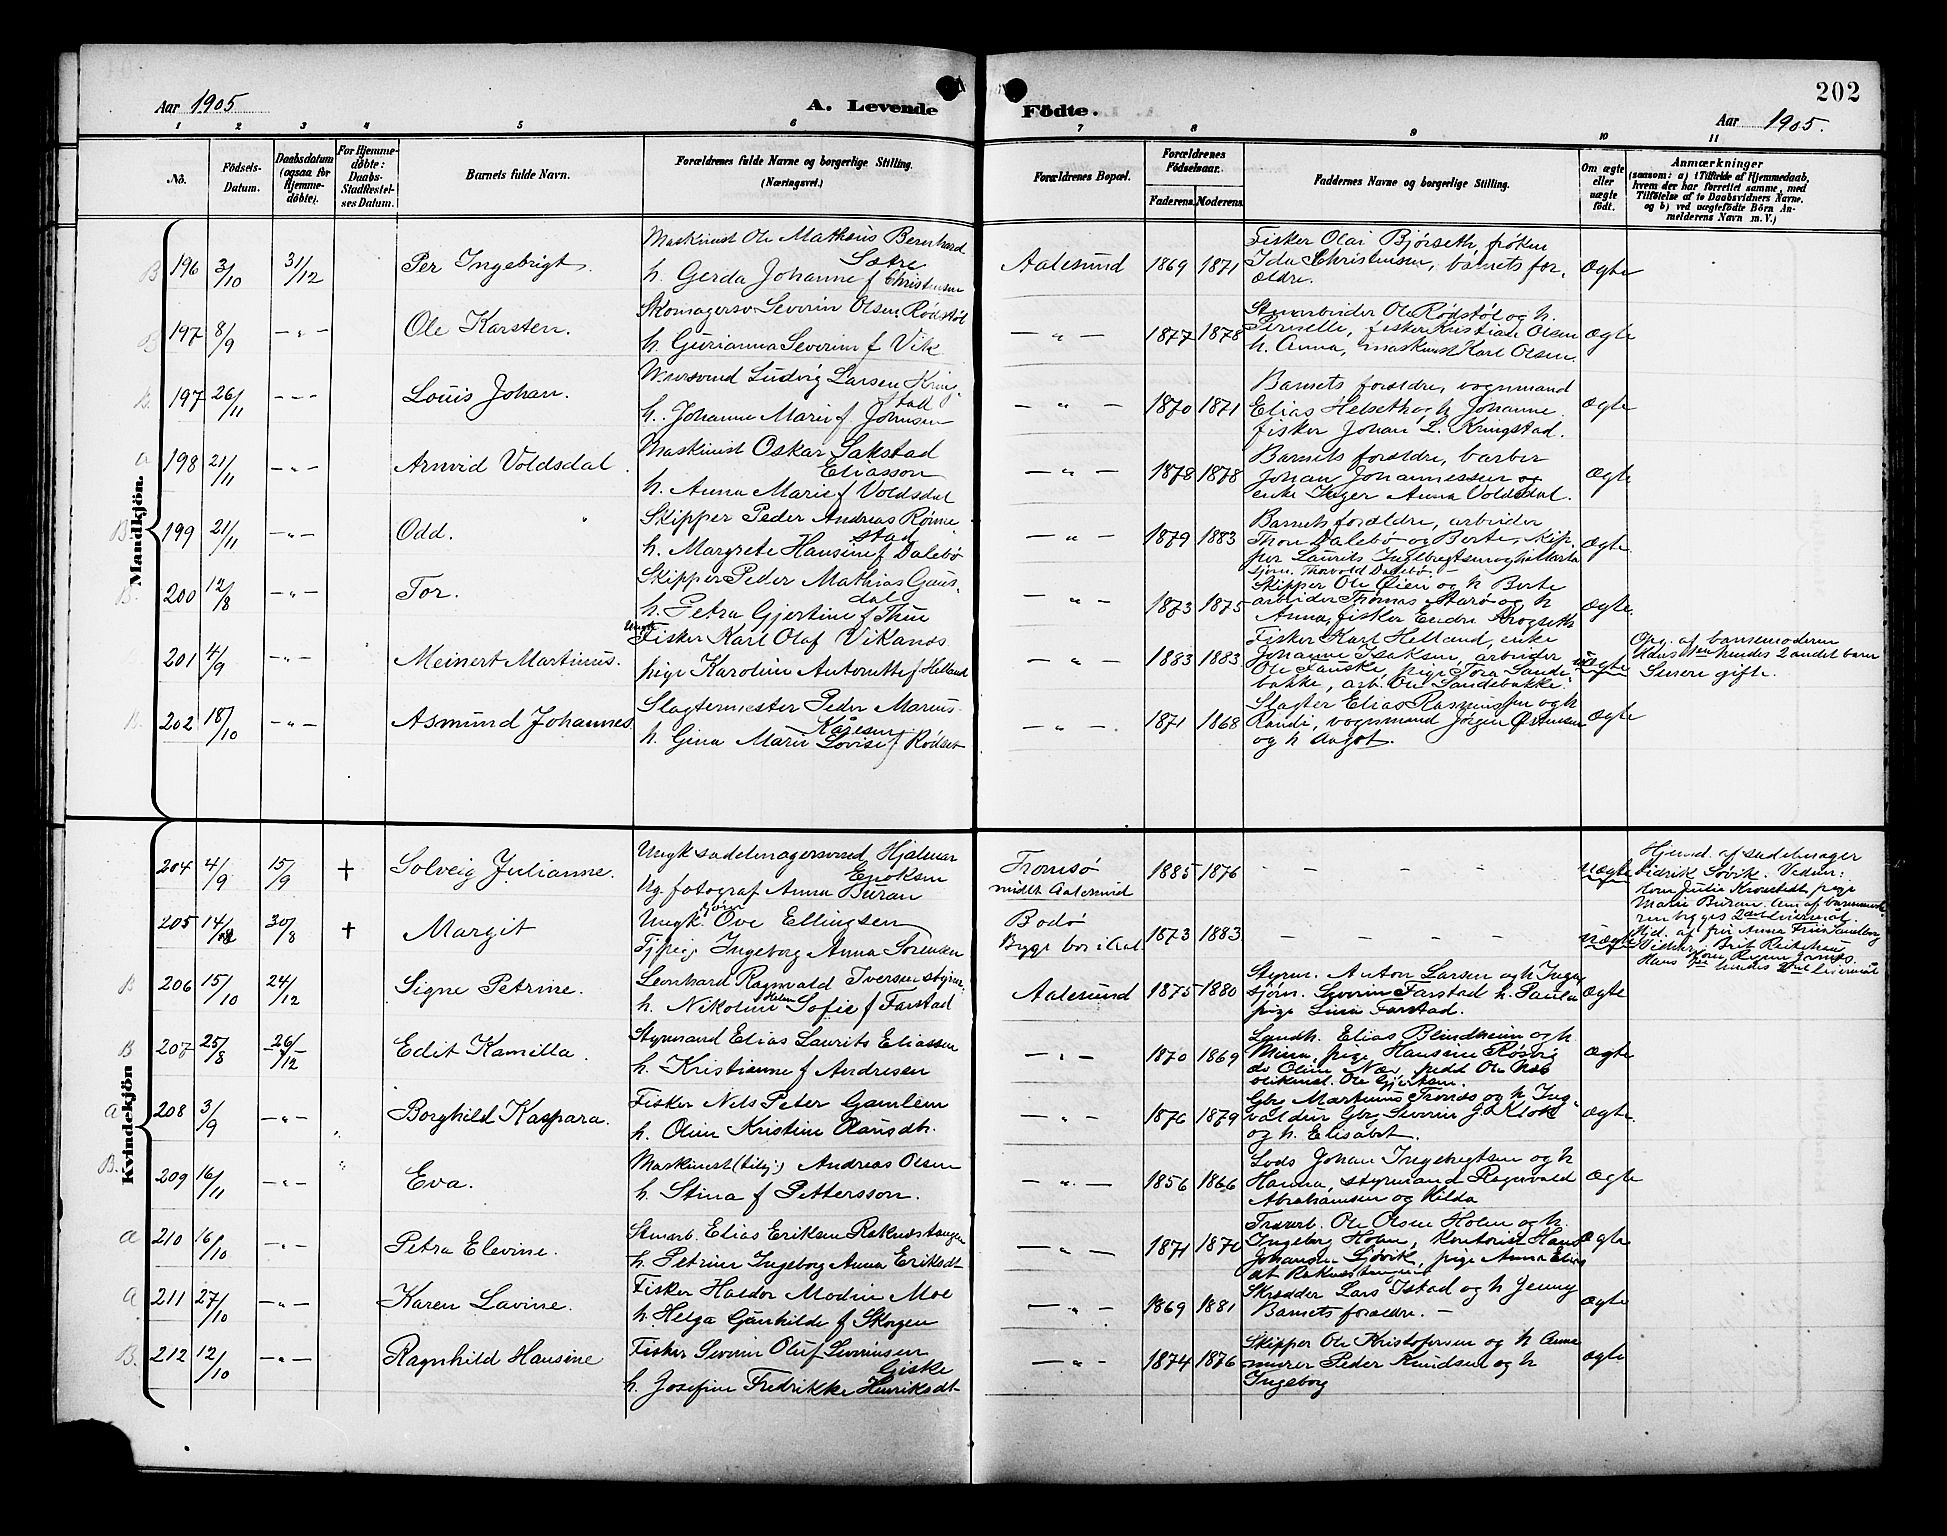 Aar 1905
A. Levende
Födte.
202
Aar 1905.
1 2 3 4 5 6 7 8 9 10 11
Nô.
Födsels-
Datum.
Daabsdatum
(ogsaa for
Hjemme-
döbte).
For Hjemme-
döbte:
Daabs-
Stadfestel-
ses Datum.
Barnets fulde Navn.
Forældrenes fulde Navne og borgerlige Stilling.
(Næringsvei.)
Forældrenes Bopæl.
Forældrenes
Födselsaar.
Faderens. Moderens.
Faddernes Navne og borgerlige Stilling.
Om ægte
eller
uægte
födt.
Anmærkninger
(saasom: a) i Tilfælde af Hjemmedaab,
hvem der har forrettet samme, med
Tilföielse af to Daabsvidners Navne.
og b) ved uægtefödte Börn An-
melderens Navn m. V.)
Mandkjön.
B 196 3/10 31/12 Per Ingebrigt.
Maskinist Ole Mathæus Bernhard
Sætre
h. Gerda Johanne f Christensen
Aalesund 1869 1871
Fisker Olai Bjørseth, frøken
Ida Christensen, barnets for-
ældre.
Ægte
B 197 8/9 — „ — Ole Karsten.
Skomagersv Severin Olsen Rødstøl
h. Gurianna Severine f Vik
— „ — 1877 1878
Stenarbeider Ole Rødstøl og h.
Pernelle, fisker Kristian Olsen
h. Anna, maskinist Karl Olsen.
Ægte
B. 197 26/11 — „ — Louis Johan.
Ludvig Larsen Kring-
stad
h. Johanne Marie f Johnsen
— „ — 1870 1871
Barnets forældre, vognmand
Elias Helseth og h Johanne.
fisker Johan L. Kringstad.
Ægte
a 198 21/11 — „ — Arnvid Voldsdal.
Maskinist Oskar Sakstad
Eliassen
h. Anna Marie f Voldsdal
— „ — 1878 1878
Barnets forældre, barber
Johan Johannessen og
enke Inger Anna Voldsdal.
Ægte
B. 199 21/11 — „ — Odd.
Skipper Peder Andreas Rønne-
stad
h. Margrete Hansine f Dalebø
— „ — 1879 1883
Barnets forældre, arbeider
Thore Dalebø og Berte, skip-
per Laurits Ingebrigtsen og h Marta
sjøm. Thorvald Dalebø —
Ægte
B. 200 12/8 — „ — Tor.
Skipper Peder Mathias Gaus-
dal
h. Petra Gjertine f Thue
— „ — 1873 1875
Skipper Ole Øien og h Berte
arbeider Thomas Aarø og h
Anna, fisker Endre Krogseth
Ægte.
201 4/9 — „ — Meinert Martinus.
Ungk.
Fisker Karl Olaf Viklands
pige Karoline Antonette f Helland
— „ — 1883 1883
Fisker Karl Helland, enke
Johanne Isaksen, arbeider
Ole Fauske, pige Tora Sande-
bakke, arb. Ole Sandebakke.
uægte
Opg. af barnemoderen
Hans 1ste hendes 2 andet barn
Senere gifte.
B. 202 18/10 — „ — Asmund Johannes
Slagtermester Peder Marius
Kåresen
h. Gina Marie Lovise f Rødset
— „ — 1871 1868
Slagter Elias Rasmussen og h
Randi, vognmand Jørgen Østensen
og h Aagot.
Ægte
Kvindekjön
204 4/9 15/9 + Solveig Julianne.
Ungk sadelmagersvend Hjalmar
Enoksen
Ug. fotograf Anna Buran
Tromsø
midlt Aalesund 1885 1876
— — — — —
Uægte
Hjemd. af sadelmager
Didrik Søvik. Vidner:
Kone Julia Kronstedt, pige
Marie Buran. Anm af barnemode-
ren begges 2det leiermål.
205 14/8 30/8 + Margit
Ungk. sjøm Ove Ellingsen
Tjpige Ingeborg Anna Sørensen
Bodø
Begge bor i Aal 1873 1883
— — — — —
Uægte
Hjd. af fru Anna Friis Sandborg
Hans 1ste hendes 2det leiermål
B 206 15/10 24/12 Signe Petrine.
Leonhard Ragnvald Iversen styrm.
h. Nikoline Helene Sofie f Farstad
Aalesund 1875 1880
Styrm. Anton Larsen og h Inga
sjøm. Severin Farstad h. Paula
pige Lina Farstad.
Ægte
B 207 25/8 26/12 Edit Kamilla.
Styrmand Elias Laurits Eliassen
h. Kristianne f Andresen
— „ — 1870 1869
Landh. Elias Blindheim og h
Mina, pige Hansine Røsvig
do Oline Næs, pedt Ole Næs
Ole Gjertsen.
Ægte
a 208 3/9 — „ — Borghild Kaspara.
Fisker Nels Peter Gamlem
h. Oline Kristine Olausdtr.
— „ — 1876 1879
Gbr Martinus Tronæs og h Ing-
valdur Gbr Severin J. Klok
og h. Elisabet.
Ægte.
B. 209 16/11 — „ — Eva.
Maskinist (tidl.) Andreas Olsen
h. Stina f Pettersson.
— „ — 1856 1866
Lods Johan Ingebrigtsen og h
Hanna, styrmand Ragnvald
Abrahamsen og Hilda
Ægte
a 210 16/10 — „ — Petra Elevine.
Stenarb. Elias Eriksen Raknestangen
h. Petrine Ingeborg Anna Eriksdt.
— „ — 1871 1870
Ole Olsen Holen og h.
Ingeborg Holen, kontorist Hans
Johansen Sjøvik, pige Anna Elias
dt Raknestangen
Ægte
a 211 27/10 — „ — Karen Lavine.
Fisker Haldor Modin Moe
h. Helga Gunhilde f Skorgen
— „ — 1869 1881
Skrædder Lars Istad og h Jenny
Barnets forældre. —
Ægte
B. 212 12/10 — „ — Ragnhild Hansine
Fisker Severin Oluf Severinsen
Giske
h. Josefine Fredrikke Henriksdt.
— „ — 1874 1876
Skipper Ole Kristofersen og h Anna
murer Peder Knudsen og h
Ingeborg
Ægte